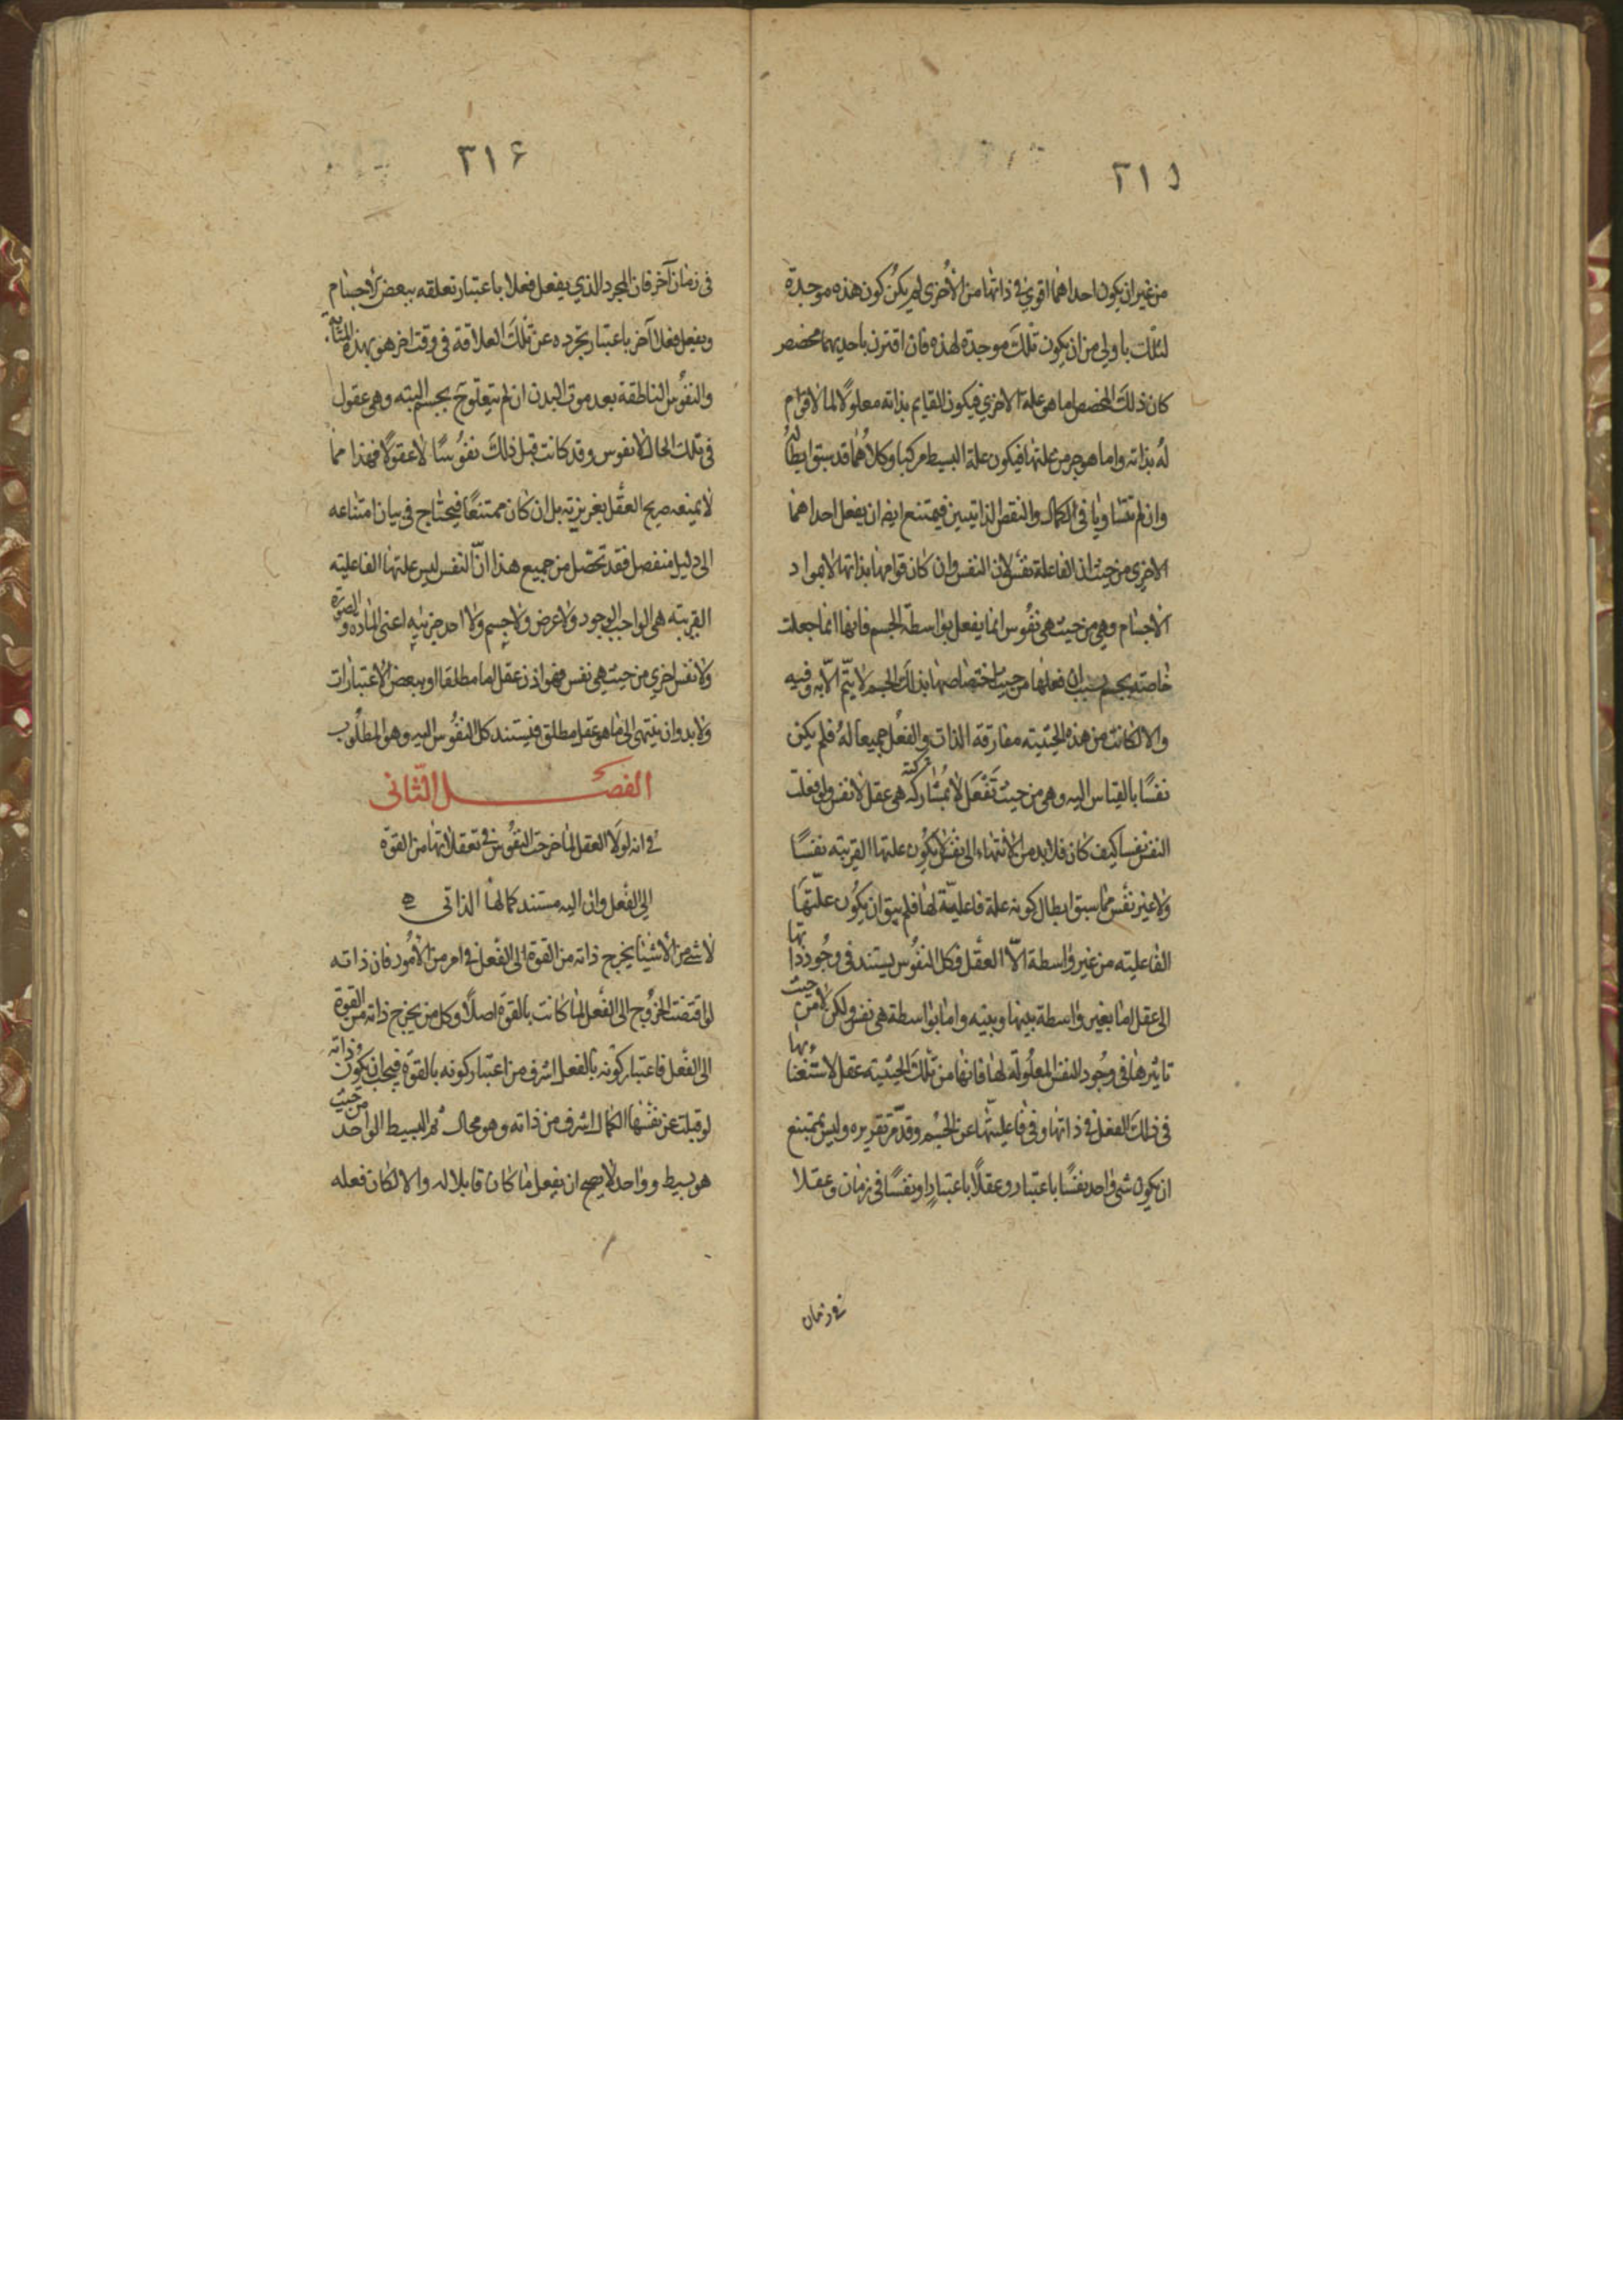 ٣١٥
من غير ان يكون احداهما اقوى فى ذاتها من الاخرى لم يكن كون هذه موجدة
لتلك باولى من ان يكون تلك موجدة لهذه فان اقترن باحديهما مخصص
كان ذلك المخصص اما هو علة الاخرى فيكون القايم بذاته معلولا لما لا قوام
له بذاته واما هو جزء من علتها فيكون علة البسيط مركبا وكلاهما قد سبق ابطاله
وان لم تتساويا فى الكمال والنقص الذاتيين فيمتنع ايضا ان يفعل احداهما
الاخرى من حيث ان الفاعلة نفس لان النفس وان كان قوامها بذاتها لا بمواد
الاجسام وهى من حيث هى نفوس انما يفعل بواسطة الجسم فانها انما جعلت
خاصة بجسم بسبب ان فعلها من حيث اختصاصها بذلك الجسم لا يتم الا به وفيه
والا لكانت من هذه الحيثية مفارقة الذات والفعل جميعا له فلم يكن
نفسا بالقياس اليه وهى من حيث تفعل لا بمشاركته هى عقل لا نفس ولو فعلت
النفس نفسا كيف كان فلا بد من الانتهاء الى نفس لا يكون علتها القريبة نفسا
ولا غير نفس مما سبق ابطال كونه علة فاعلية لها فلم يبق ان يكون علتها
الفاعلية من غير واسطة الا العقل فكل النفوس يستند فى وجود ذاتها
الى عقل اما بغير واسطة بينها وبينه واما بواسطة هى نفس ولكن لا من حيث
تاثيرها فى وجود النفس المعلولة لها فانها من تلك الحيثية عقل لاستغنائها
فى ذلك الفعل فى ذاتها وفى فاعليتها عن الجسم وقد مر تقريره وليس بممتنع
ان يكون شى واحد نفسا باعتبار وعقلا باعتبار او نفسا فى زمان وعقلا
فى زمان
٣١۶
فى زمان آخر فان المجرد الذي يفعل فعلا باعتبار تعلقه ببعض الاجسام
ويفعل فعلا آخر باعتبار تجرده عن تلك العلاقة فى وقت اخر هو بهذه المثابة
والنفوس الناطقة بعد موت البدن ان لم يتعلق بجسم البته وهى عقول
فى تلك الحال لا نفوس وقد كانت قبل ذلك نفوسا لا عقولا فهذا مما
لا يمنعه صريح العقل بغريزيته بل ان كان ممتنعا فيحتاج فى بيان امتناعه
الى دليل منفصل فقد تحصل من جميع هذا ان النفس ليس علتها الفاعلية
القريبة هى الواجب الوجود ولا عرض ولا جسم ولا احد جزئيه اعنى المادة والصورة
ولا نفس اخرى من حيث هى نفس فهو اذن عقل اما مطلقا او ببعض الاعتبارات
ولا بد وان ينتهى الى ما هو عقل مطلق فيستند كل النفوس اليه وهو المطلوب
الفصل الثانى
فى انه لولا العقل لما خرجت النفوس فى تعقلاتها من القوة
الى الفعل وان اليه مستند كمالها الذاتى
لا شى من الاشيا يخرج ذاته من القوة الى الفعل فى امر من الامور فان ذاته
لو اقتضت الخروج الى الفعل لما كانت بالقوة اصلا وكل من يخرج ذاته من القوة
الى الفعل فاعتبار كونه بالفعل اشرف من اعتبار كونه بالقوة فيجب ان يكون ذاته
لو قبلت عن نفسها الكمال اشرف من ذاته وهو محال ثم البسيط الواحد من حيث
هو بسيط وواحد لا يصح ان يفعل ما كان قابلا له والا لكان فعله